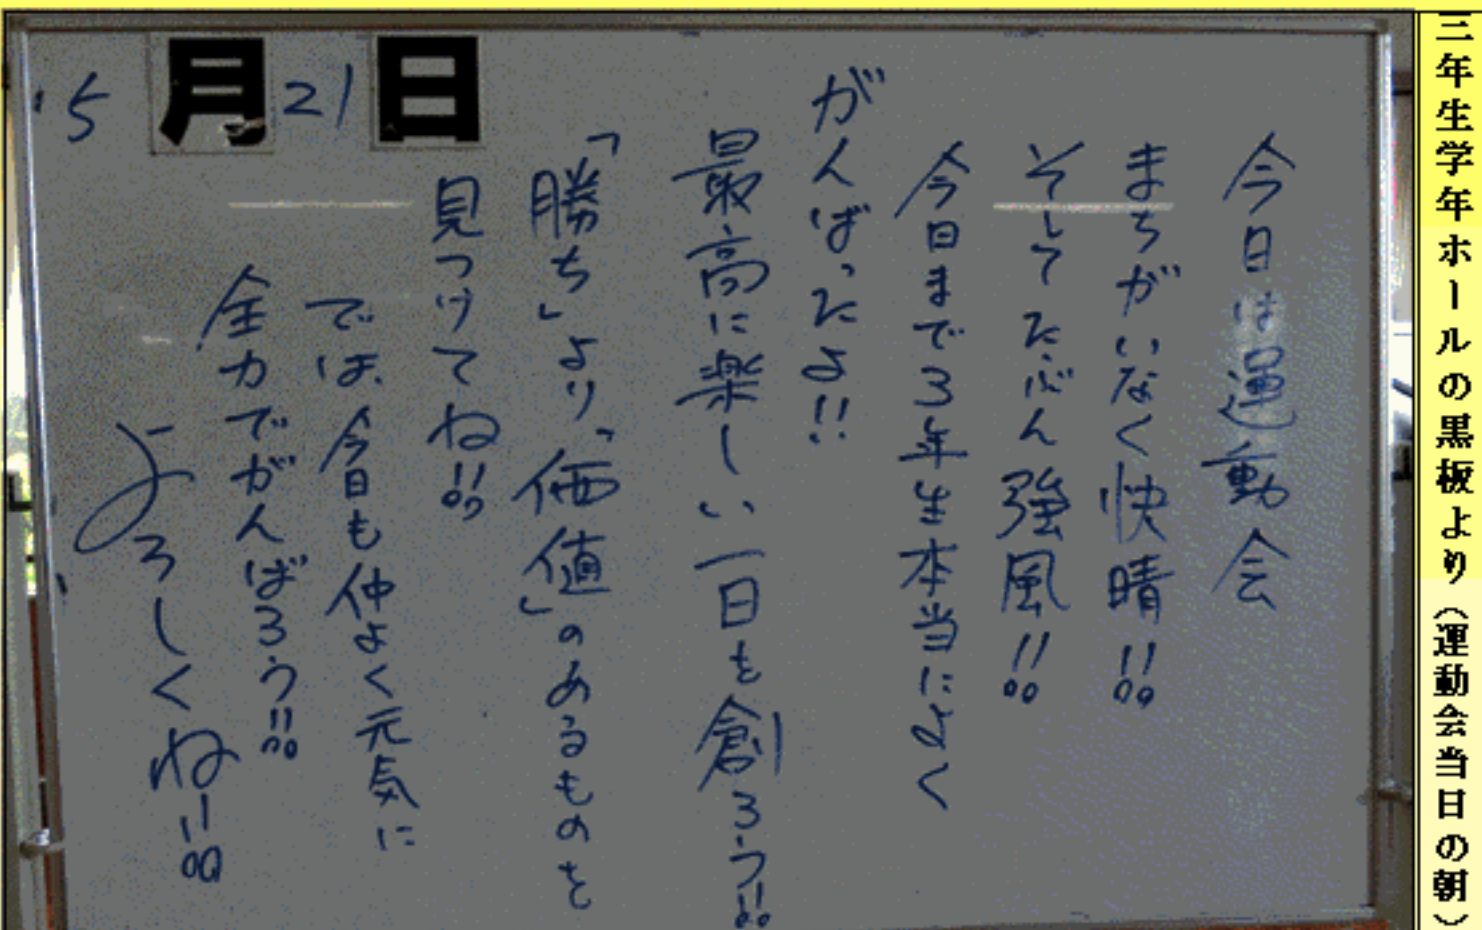 三年生学年ホールの黒板より（運動会当日の朝）
今日は運動会
まちがいなく快晴!!
そしてたぶん強風!!
今日まで3年生本当によく
がんばったよ!!
最高に楽しい一日を創ろう!!
「勝ち」より、「価値」のあるものを
見つけてね!!
では、今日も仲よく元気に
全力でがんばろう!!
よろしくねー!!
5月21日